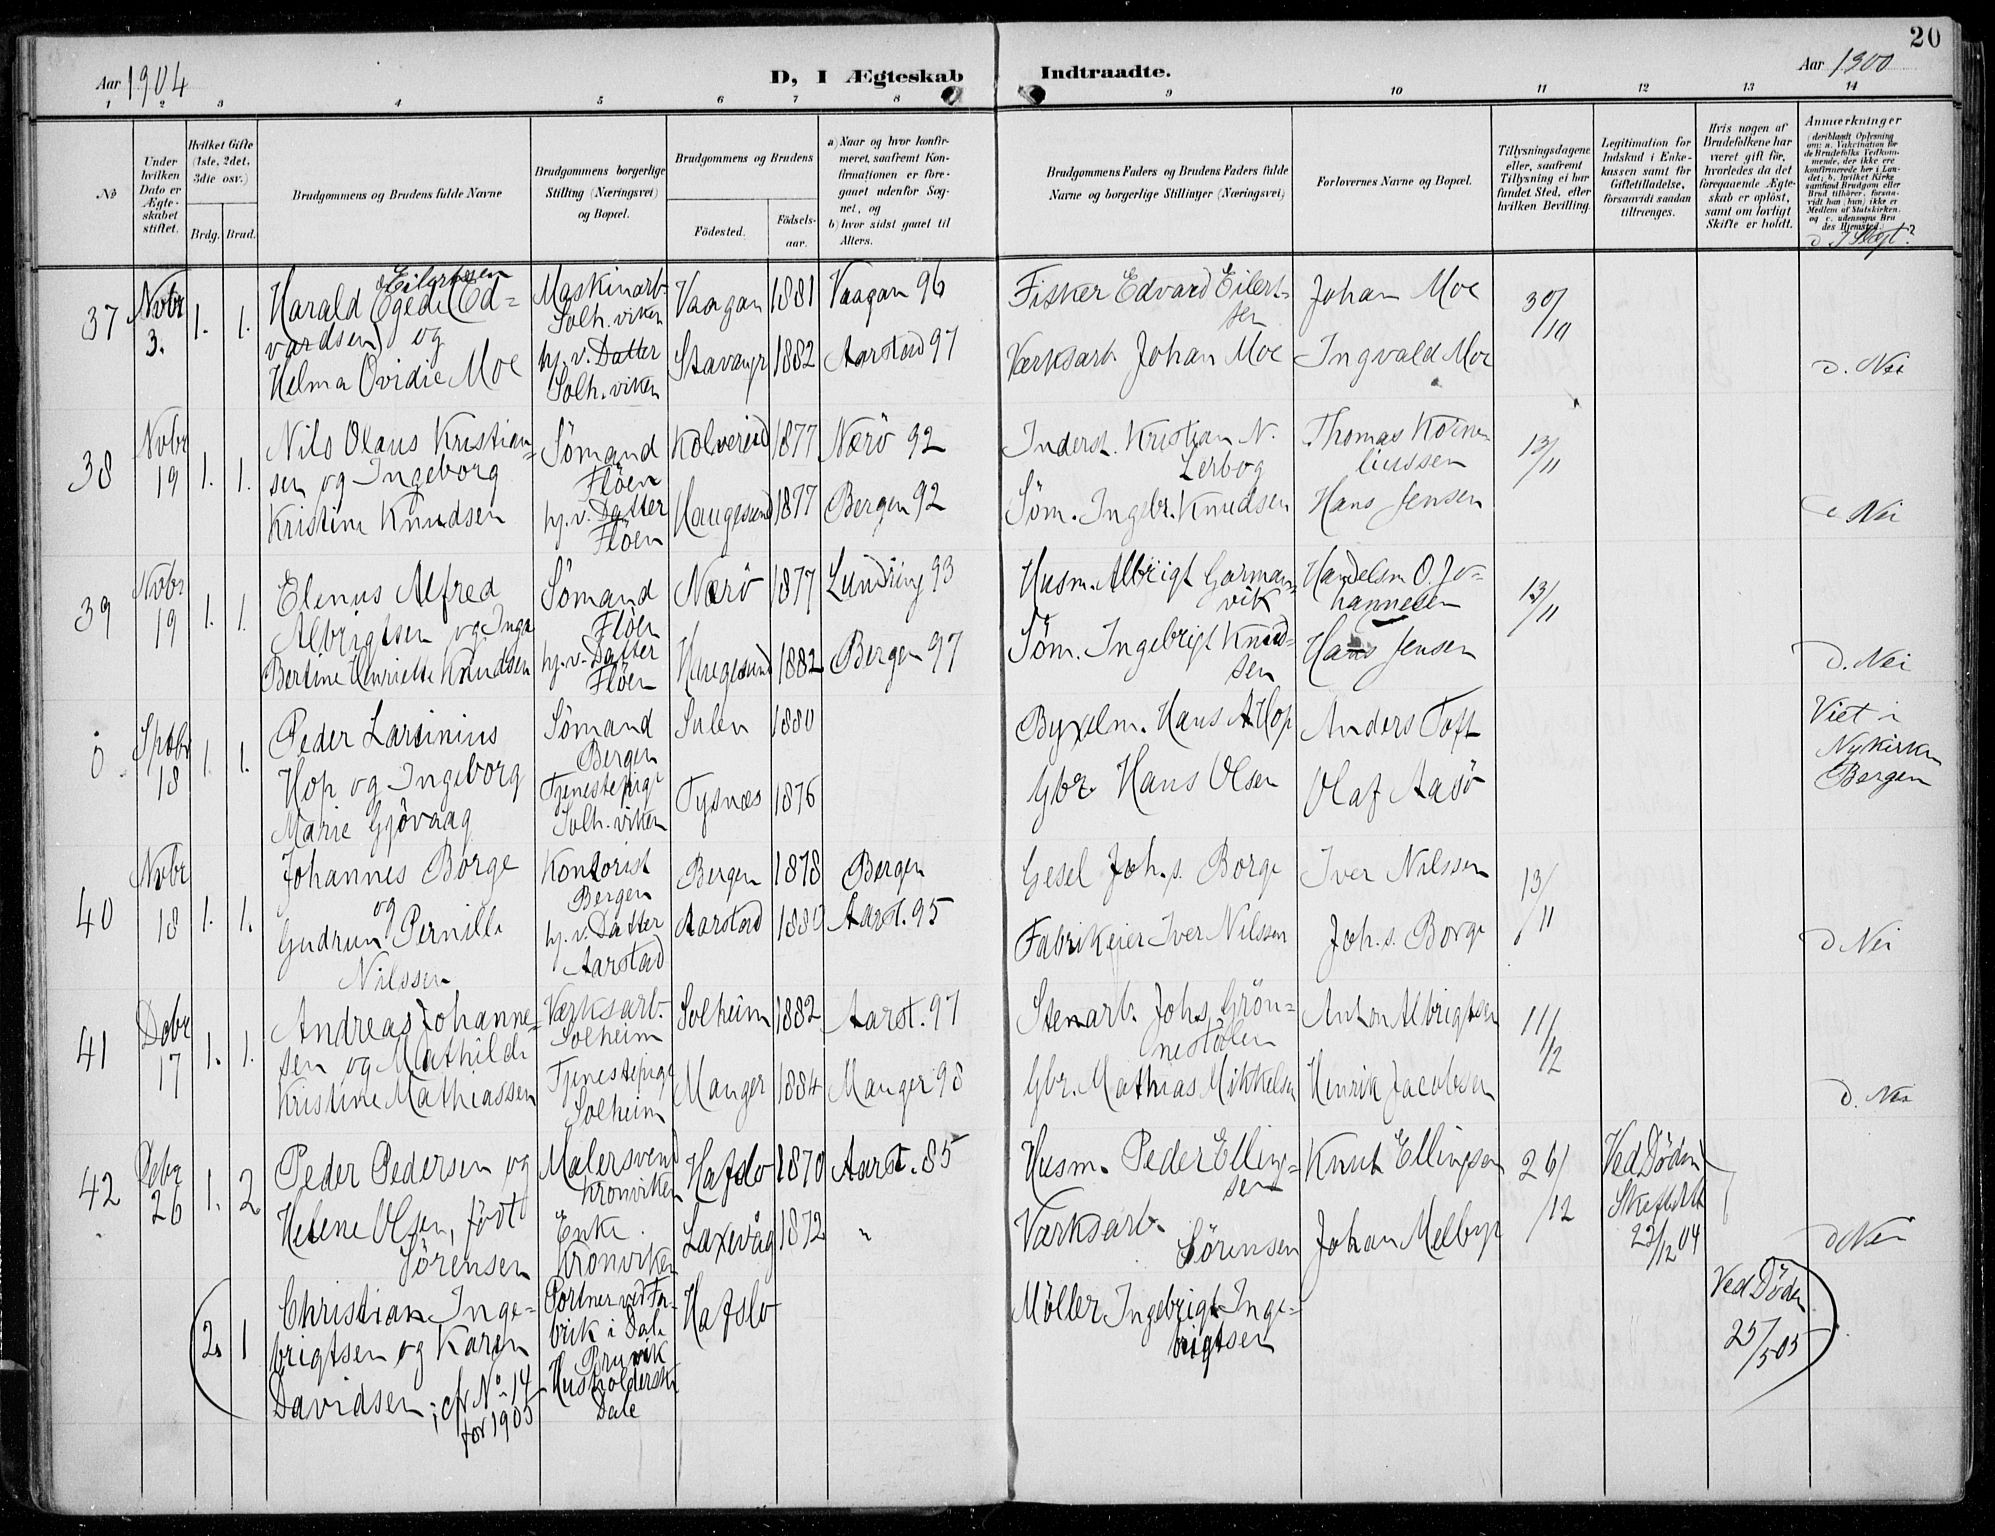 20
Aar 1904
D, I Ægteskab Indtraadte.
Aar 1900
1 2 3 4 5 6 7 8 9 10 11 12 13 14
№
Under hvilken Dato er Ægteskabet stiftet.
Hvilket Gifte (1ste, 2det, 3die osv.)
Brdg. Brud.
Brudgommens og Brudens fulde Navne
Brudgommens borgerlige Stilling (Næringsvei) og Bopæl.
Brudgommens og Brudens
Fødested.
Fødselsaar.
a) Naar og hvor konfirmeret, saafremt Konfirmationen er foregaaet udenfor Sognet, og
b) hvor sidst gaaet til Alters.
Brudgommens Faders og Brudens Faders fulde Navne og borgerlige Stillinger (Næringsvei)
Forlovernes Navne og Bopæl.
Tillysningsdagene eller, saafremt Tillysning ei har fundet Sted, efter hvilken Bevilling.
Legitimation for Indskud i Enkekassen samt for Giftetilladelse, forsaavidt saadan tiltrænges.
Hvis nogen af Brudefolkene har været gift før, hvorledes da det foregaaende Ægteskab er opløst, samt om lovligt Skifte er holdt.
Anmærkninger
d I Slægt?
37 Novbr 3. 1. 1.
Eilertsen
Harald Egede (Edvardsen) og
Helma Ovidie Moe
Maskinarb. Solh.viken
hj. v. Datter Solh.viken
Vaagan 1881 Vaagan 96
Stavangr 1882 Aarstad 97
Fisker Edvard Eilertsen
Værksarb. Johan Moe
Johan Moe
Ingvald Moe
30/10
d. Nei
38 Novbr 19 1. 1.
Nils Olaus Kristiansen og Ingeborg
Kristine Knudsen
Sømand Fløen
hj. v. Datter Fløen
Kolvereid 1877 Nærø 92
Haugesund 1877 Bergen 92
Inderst. Kristian N. Lerbog
Søm. Ingebr. Knudsen
Thomas Korneliussen
Hans Jensen
13/11
d Nei
39 Novbr 19 1. 1.
Elenus Alfred
Albrigtsen og Inga
Bertine Henriette Knudsen
Sømand Fløen
hj. v. Datter Fløen
Nærø 1877 Lundring 93
Haugesund 1882 Bergen 97
Husm. Albrigt Garmanvik
Søm. Ingebrigt Knudsen
Handelsm O. Johannesen
Hans Jensen
13/11
d. Nei
0 Septbr 18 1. 1.
Peder Larsinius
Hop og Ingeborg
Marie Gjøvaag
Sømand Bergen
Tjenestepige Solh.viken
Sulen 1880
Tysnæs 1876
Byxelm. Hans A Hop
Gbr. Hans Olsen
Anders Toft
Olaf Aasø
Viet i
Nykirken
Bergen
40 Novbr 18 1. 1.
Johannes Borge
og
Gudrun Pernille
Nilssen
Kontorist Bergen
hj. v. Datter Aarstad
Bergen 1878 Bergen
Aarstad 1880 Aarst. 95
Gesel Joh.s. Borge
Fabrikeier Iver Nilssen
Iver Nilssen
Joh.s. Borge
13/11
d Nei
41 Decbr 17 1. 1.
Andreas Johannesen og Mathilde
Kristine Mathiassen
Værksarb. Solheim
Tjenestepige Solheim
Solheim 1882 Aarst. 97
Manger 1884 Manger 98
Stenarb. Johs Grønnestølen
Gbr. Mathias Mikkelsen
Anton Albrigtsen
Henrik Jacobsen
11/12
d. Nei
42 Decbr 26 1. 2
Peder Pedersen og
Helene Olsen, født
Sørensen
Malersvend Kronviken
Enke. Kronviken
Hafslo 1870 Aarst. 85
Laxevåg 1872 "
Husm. Peder Ellingsen
Værksarb. Sørensen
Knut Ellingsen
Johan Melbye
26/12
Ved Døden
23/12 04
d Nei
2. 1
Christian Ingebrigtsen og Karen
Davidsen; cfr No 14
for 1905
Portner ved Fabrik i Dale
Bruvik
Dale
Hafslo
Møller Ingebrigt Ingebrigtsen
Ved Døden
25/5 05